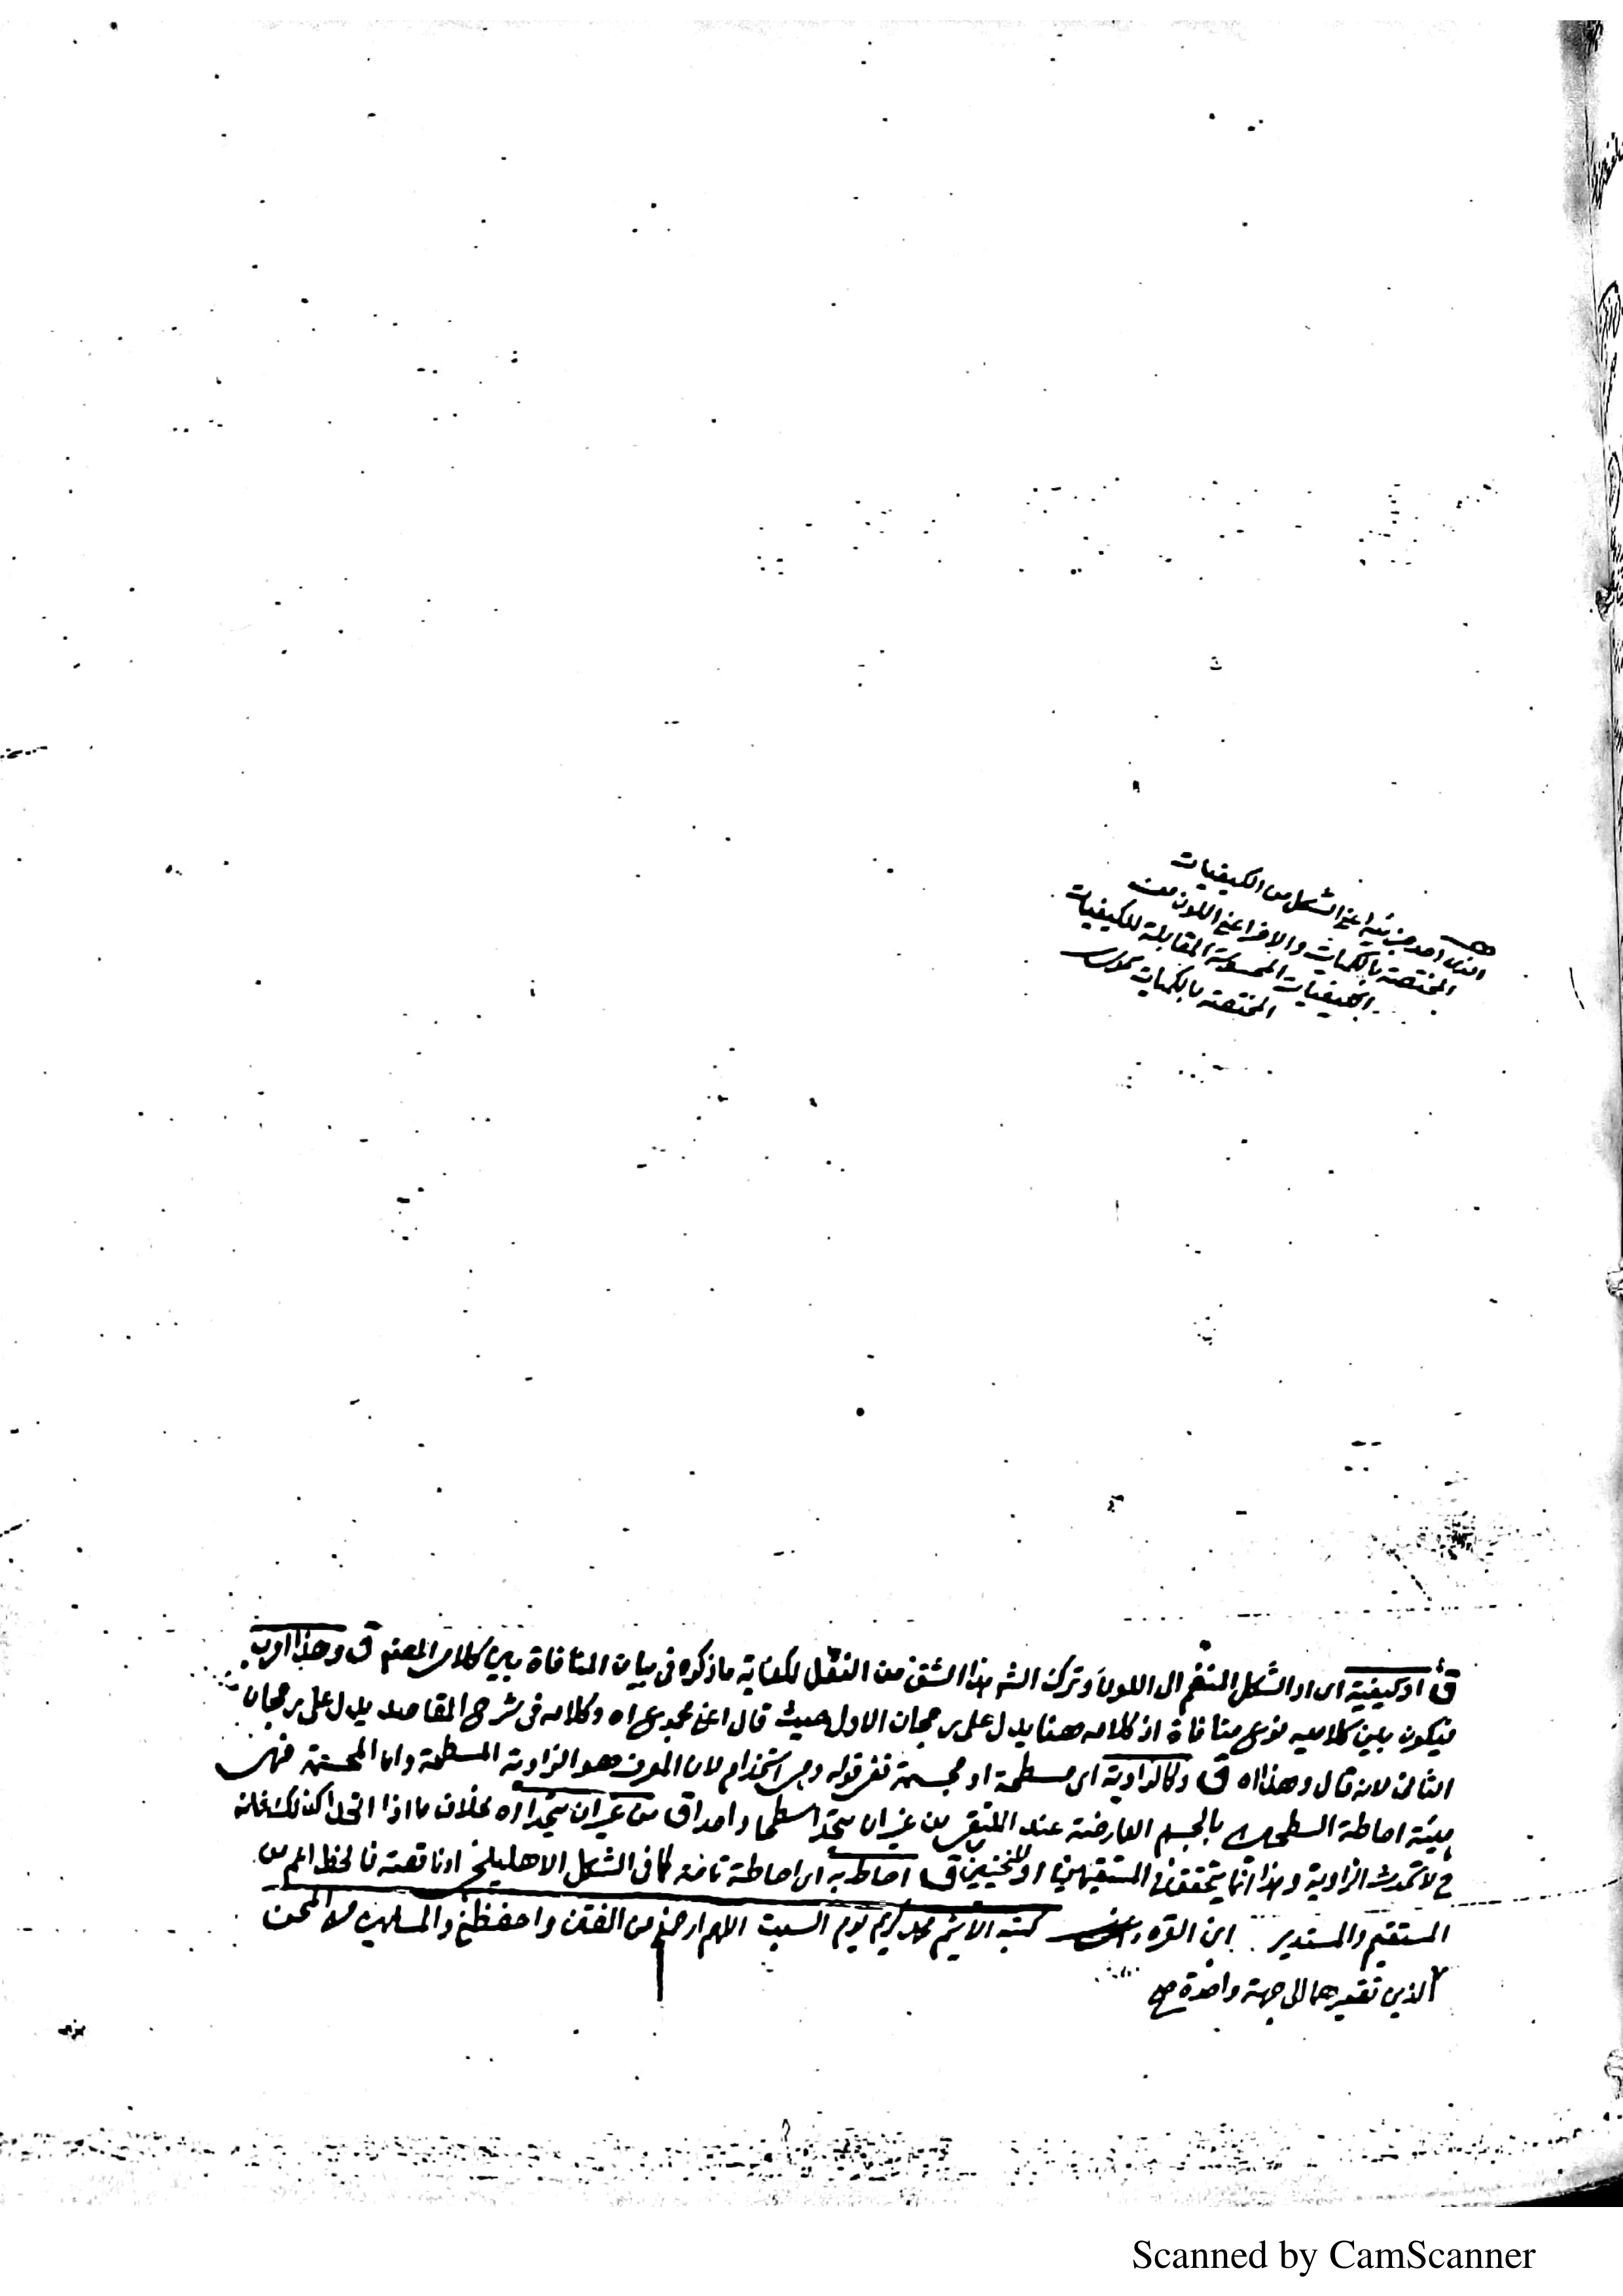 الذى احد جزئيه اعنى الشكل من الكيفيات
المختصة بالكميات والاخر اعنى اللون من
الكيفيات المحسوسة المقابلة للكيفيات
المختصة بالكميات
ق او كيفية اى او الشكل المنضم الى اللون وترك الشه هذا الشق من النقل لكفاية ما ذكره فى بيان المنافاة بين كلامى المصنف ق وهذا اقرب
فيكون بين كلاميه نوع منافاة اذ كلامه هنا يدل على رجحان الاول حيث قال اعنى مجموع اه وكلامه فى شرح المقاصد يدل على رجحان
الثانى لانه قال وهذا اه ق وكالزاوية اى مسطحة او مجسمة ففى قوله وهى استخدام لان المعرف هو الزاوية المسطحة واما المجسمة فهى
هيئة احاطة السطحين بالجسم العارضة عند الملتقى من غير ان يتحدا سطحا واحدا ق من غير ان يتحدا اه بخلاف ما اذا اتحدا كذلك فانه
ح لا تحدث الزاوية وهذا انما يتحقق فى المستقيمين او المنحنيين ق احاط به اى احاطة تامة كما فى الشكل الاهليلجى او ناقصة فالخط اعم من
المستقيم والمستدير ابن القره داغى كتبه الاثيم محمد كريم يوم السبت اللهم ارحمنى من الفتن واحفظنى والمسلمين من المحن
الذين تقعيرهما الى جهة واحدة صح
Scanned by CamScanner